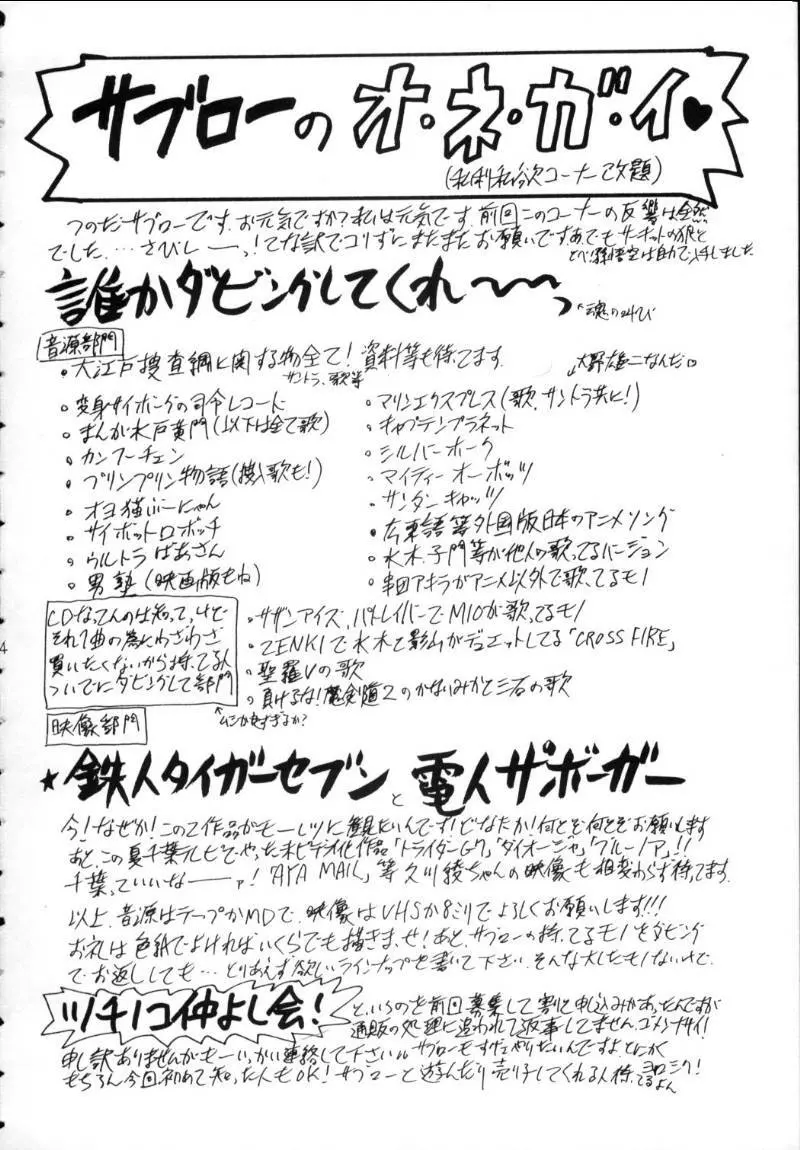 サブローの オ・ネ・ガ・イ♥
(私利私欲コーナー改題)
つのだサブローです。お元気ですか?私は元気です。前回このコーナーの反響は全然
でした....さびしーーっ!てな訳でコリずにまたまたお願いです。あ、でもサーキットの狼と
とべ!孫悟空は自力で入手しました。
誰かダビングしてくれ〜〜っ
↖魂の叫び
音源部門
・大江戸捜査網に関する物全て!資料等も待ってます
サントラ、歌等
↓大野雄二なんだ♡
・変身サイボーグの司令レコード
・まんが水戸黄門(以下は全て歌)
・カンフーチェン
・プリンプリン物語(挿入歌も!)
・オヨ猫ぶーにゃん
・サイボットロボッチ
・ウルトラばあさん
・男塾(映画版もね)
・マリンエクスプレス(歌、サントラ共に!)
・キャプテンプラネット
・シルバーホーク
・マイティーオーボッツ
・サンダーキャッツ
・広東語等外国版日本のアニメソング
・水木、子門等が他人の歌ってるバージョン
・串田アキラがアニメ以外で歌ってるモノ
CDなってんのは知って、けど
それ1曲の為にわざわざ
買いたくないから持ってる人
ついでにダビングして部門
↖ムシが良すぎるか?
・サザンアイズ、パトレイバーでMIOが歌ってるモノ
・ZENKIで水木と影山がデュエットしてる「CROSS FIRE」
・聖羅Vの歌
・負けるな!魔剣道2のかないみかと三石の歌
映像部門
★鉄人タイガーセブンと電人ザボーガー
今!なぜか!この2作品がモーレツに観たいんです!どなたか!何とぞ何とぞお願いします
あと、この夏千葉テレビでやった未ビデオ化作品「トライダーG7」「ダイオージャ」「ブルーノア」!!
千葉っていいなーァ!「AYA MAIL」等久川綾ちゃんの映像も相変わらず待ってます。
以上、音源はテープかMDで、映像はVHSか8ミリでよろしくお願いします!!!
お礼は色紙でよければいくらでも描きまっせ!あと、サブローの持ってるモノをダビング
でお返ししても…とりあえず欲しいラインナップを書いて下さい。そんな大したモノないけど。
ツチノコ仲よし会!
というのを前回募集して割と申込みがあったんですが
通販の処理に追われて返事してません。ゴメンナサイ!
申し訳ありませんがもーいっかい連絡して下さい。サブローもすげェやりたいんですよ。とにかく
もちろん今回初めて知った人もOK!サブローと遊んだり売り子してくれる人待ってるよん
ヨロシク!
4